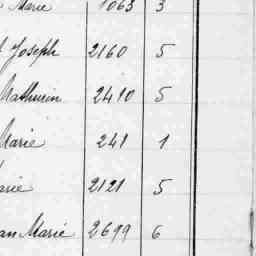 Marie 1063 3
Joseph 2160 5
Mathurin 2410 5
Marie 241 1
arie 2121 5
an Marie 2699 6